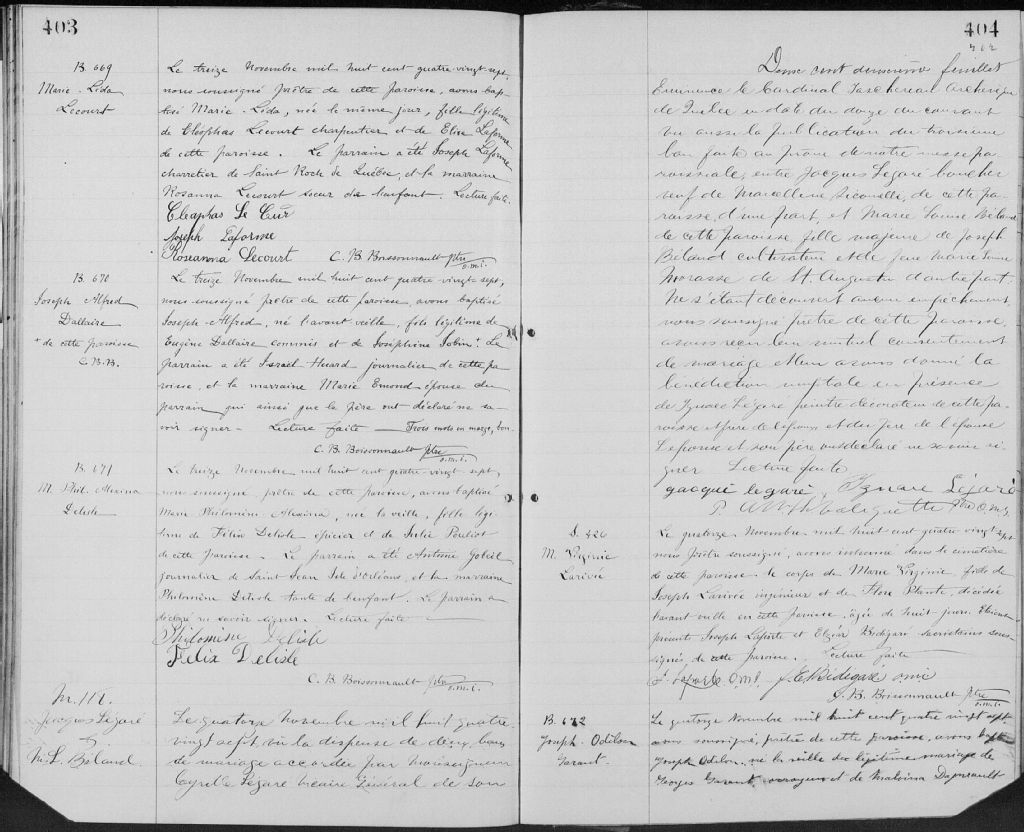 403
B. 669
Marie-Lida
Lecourt
Le treize Novembre mil huit cent quatre-vingt-sept,
nous soussigné prêtre de cette paroisse, avons bap-
tisé Marie-Lida, née le même jour, fille légitime
de Cléophas Lecourt charpentier et de Elise Laforme
de cette paroisse. Le parrain a été Joseph Laforme
charretier de Saint Roch de Québec, et la marraine
Rosanna Lecourt soeur de l'enfant. Lecture faite.
Cleaphas Le Cur
Joseph Laforme
Roseanna Lecourt C. B. Boissonnault ptre
o.m.i.
B. 670
Joseph Alfred
Dallaire
+ de cette paroisse
C.B.B.
Le treize Novembre mil huit cent quatre-vingt-sept,
nous soussigné prêtre de cette paroisse, avons baptisé
Joseph-Alfred, né l'avant veille, fils légitime de
Eugène Dallaire commis et de Joséphine Jobin+. Le
parrain a été Israël Huard journalier de cette pa-
roisse, et la marraine Marie Emond épouse du
parrain qui ainsi que le père ont déclaré ne sa-
voir signer. Lecture faite — Trois mots en marge, bon.
C. B. Boissonnault ptre
o.m.i.
B. 671
M. Phil. Alexina
Delisle
Le treize Novembre mil huit cent quatre-vingt sept,
nous soussigné prêtre de cette paroisse, avons baptisé
Marie Philomène Alexina, née la veille, fille légi-
time de Félix Delisle épicier et de Julie Pouliot
de cette paroisse. Le parrain a été Antoine Gobeil
journalier de Saint Jean Isle d'Orléans, et la marraine
Philomène Delisle tante de l'enfant. Le parrain a
déclaré ne savoir signer. Lecture faite —
Philomène Delisle
Felix Delisle
C. B. Boissonnault ptre
o.m.i.
M. 112.
Jacques Légaré
&
M. L. Béland.
Le quatorze novembre mil huit quatre
vingt sept, vu la dispense de deux bans
de mariage accordée par Monseigneur
Cyrille Légaré vicaire Général de son
404
202
Deux cent deuxième feuillet
Eminence le Cardinal Taschereau Archevêque
de Québec en date du douze du courant
vu aussi la publication du troisième
ban faite au prône de notre messe pa-
roissiale, entre Jacques Légaré boucher
veuf de Marcelline de cette pa-
roisse, d'une part, et Marie Louise Béland
de cette paroisse fille majeure de Joseph
Béland cultivateur et de feue Marie Louise
Morasse de St. Augustin d'autre part:
Ne s'étant découvert aucun empêchement,
nous soussigné prêtre de cette paroisse,
avons reçu leur mutuel consentement
de mariage et leur avons donné la
bénédiction nuptiale en présence
de Ignace Légaré peintre décorateur de cette pa-
roisse et père de l'époux et du père de l'épouse
L'épouse et son père ont déclaré ne savoir si-
gner Lecture faite
gacque legaré, Ignace Légaré
ptre O.M.I.
S. 426
M. Virginie
Larivée
Le quatorze Novembre mil huit cent quatre vingt sept
nous prêtre soussigné, avons inhumé dans le cimetière
de cette paroisse le corps de Marie Virginie fille de
Joseph Larivée ingénieur et de Flore Plante, décédée
l'avant veille en cette paroisse, âgée de huit jours. Etaient
présents Joseph Laporte et Elzéar Bédigaré sacristains sous-
signés, de cette paroisse. Lecture faite —
J. Laporte O.m.I. J. E. Bédigaré omi
C. B. Boissonnault ptre
o.m.i.
B. 672
Joseph-Odilon
Garant.
Le quatorze Novembre mil huit cent quatre vingt sept
nous soussigné, prêtre de cette paroisse, avons baptisé
Joseph Odilon, né la veille du légitime mariage de
Georges Garant, et de Malvina